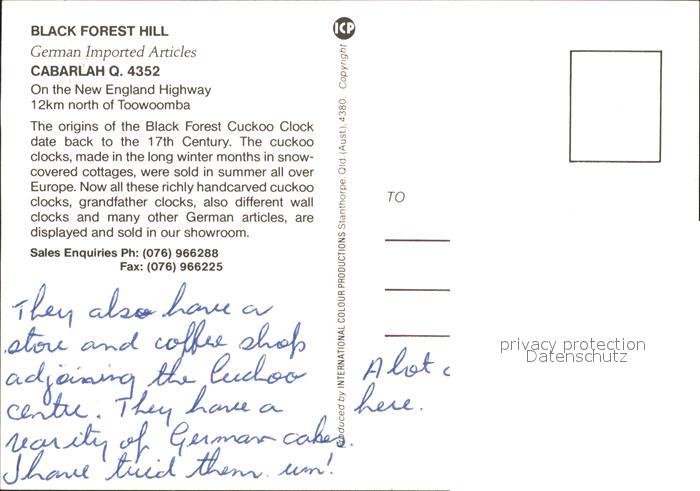 BLACK FOREST HILL
German Imported Articles
CABARLAH Q. 4352
On the New England Highway
12km north of Toowoomba
The origins of the Black Forest Cuckoo Clock
date back to the 17th Century. The cuckoo
clocks, made in the long winter months in snow-
covered cottages, were sold in summer all over
Europe. Now all these richly handcarved cuckoo
clocks, grandfather clocks, also different wall
clocks and many other German articles, are
displayed and sold in our showroom.
Sales Enquiries Ph: (076) 966288
Fax: (076) 966225
They also have a
store and coffee shop
adjoining the Cuckoo
centre. They have a
varity of German cakes.
I have tried them. um!
ICP
by INTERNATIONAL COLOUR PRODUCTIONS Stanthorpe, Qld. (Aust.), 4380. Copyright
TO
A lot
here.
privacy protection
Datenschutz